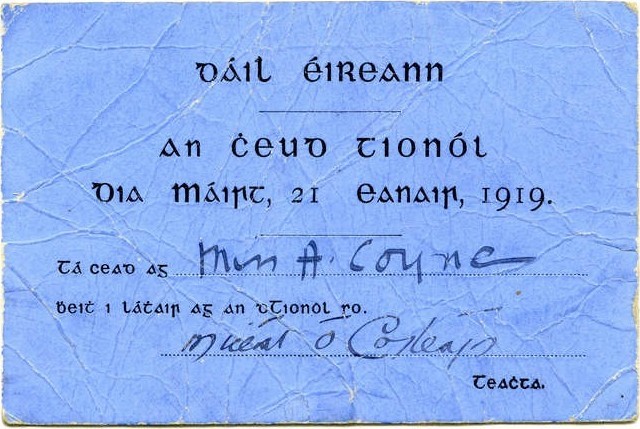 Dáil Éireann
An Ċeud Tionól
Dia Máirt, 21 Eanair, 1919.
Tá cead ag Miss A. Coyne
ḃeiṫ i láṫair ag an dTionól so.
Mícéal Ó Coileáin
Teaċta.